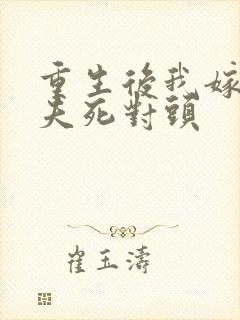 重生後我嫁
夫死對頭
崔玉濤